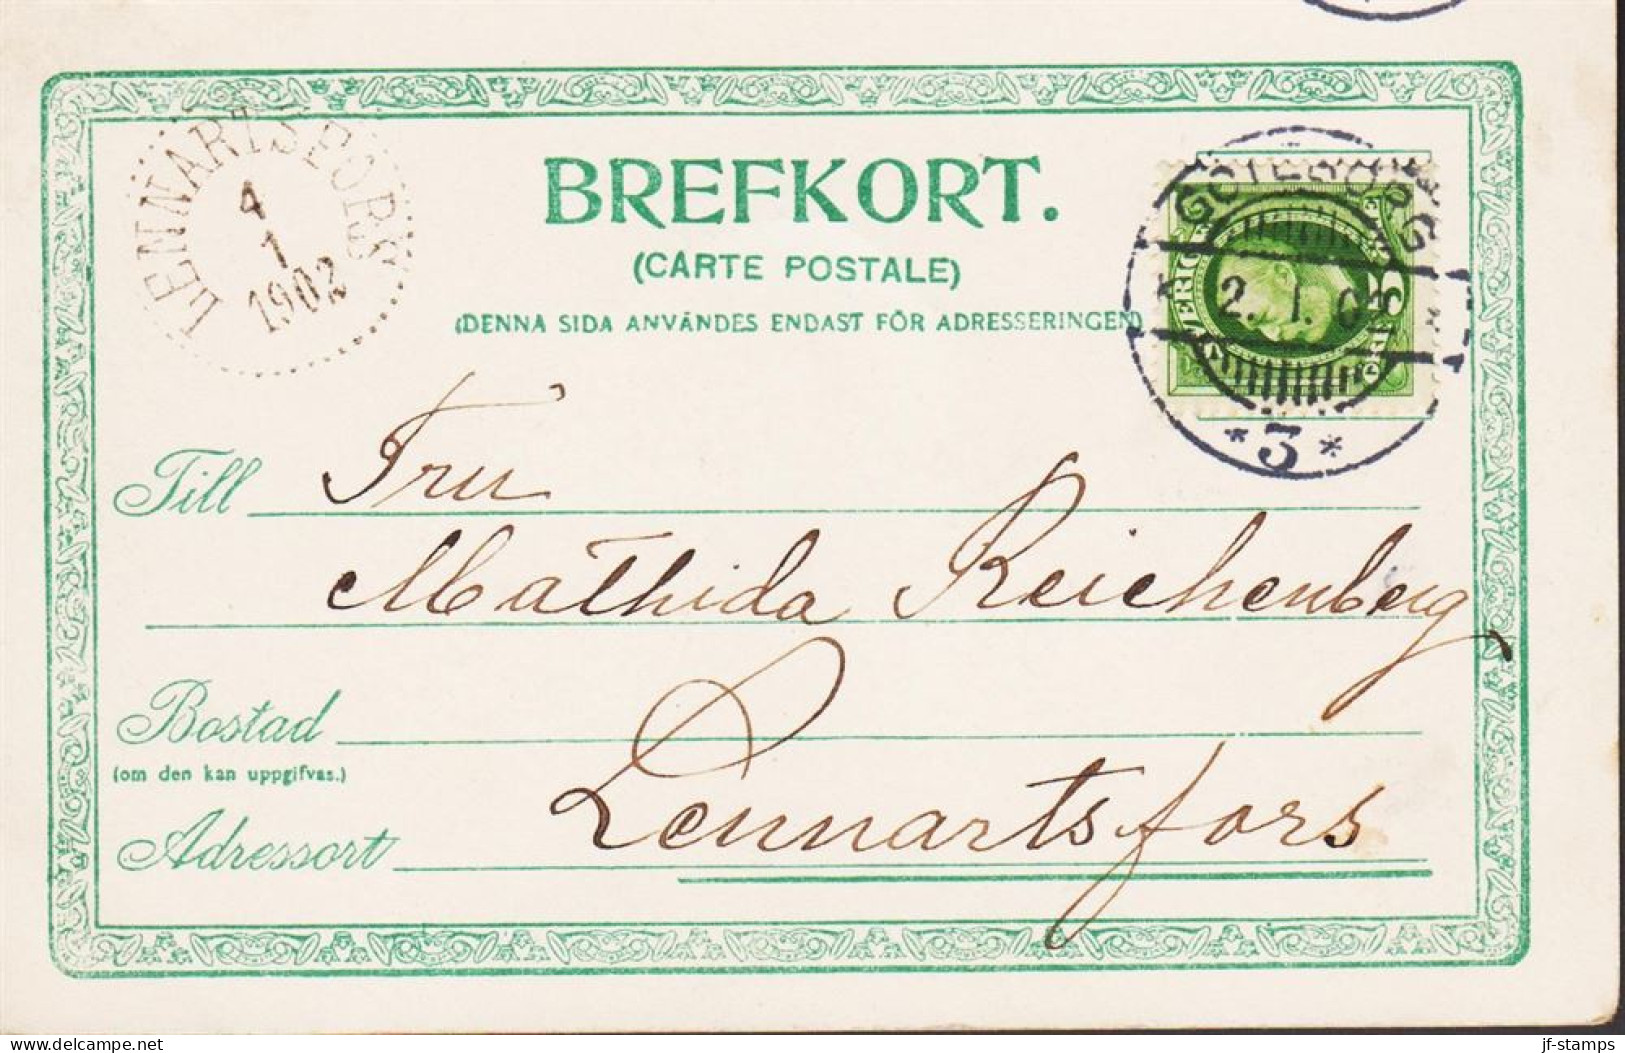 LENNARTSFORS
4
1
1902
BREFKORT.
(CARTE POSTALE)
(DENNA SIDA ANVÄNDES ENDAST FÖR ADRESSERINGEN)
GÖTEBORG
2. 1. 02
* 3 *
SVERIGE
Till Fru
Mathida Reichenberg
Bostad
(om den kan uppgifvas.)
Adressort Lennartsfors
delcampe.net
jf-stamps